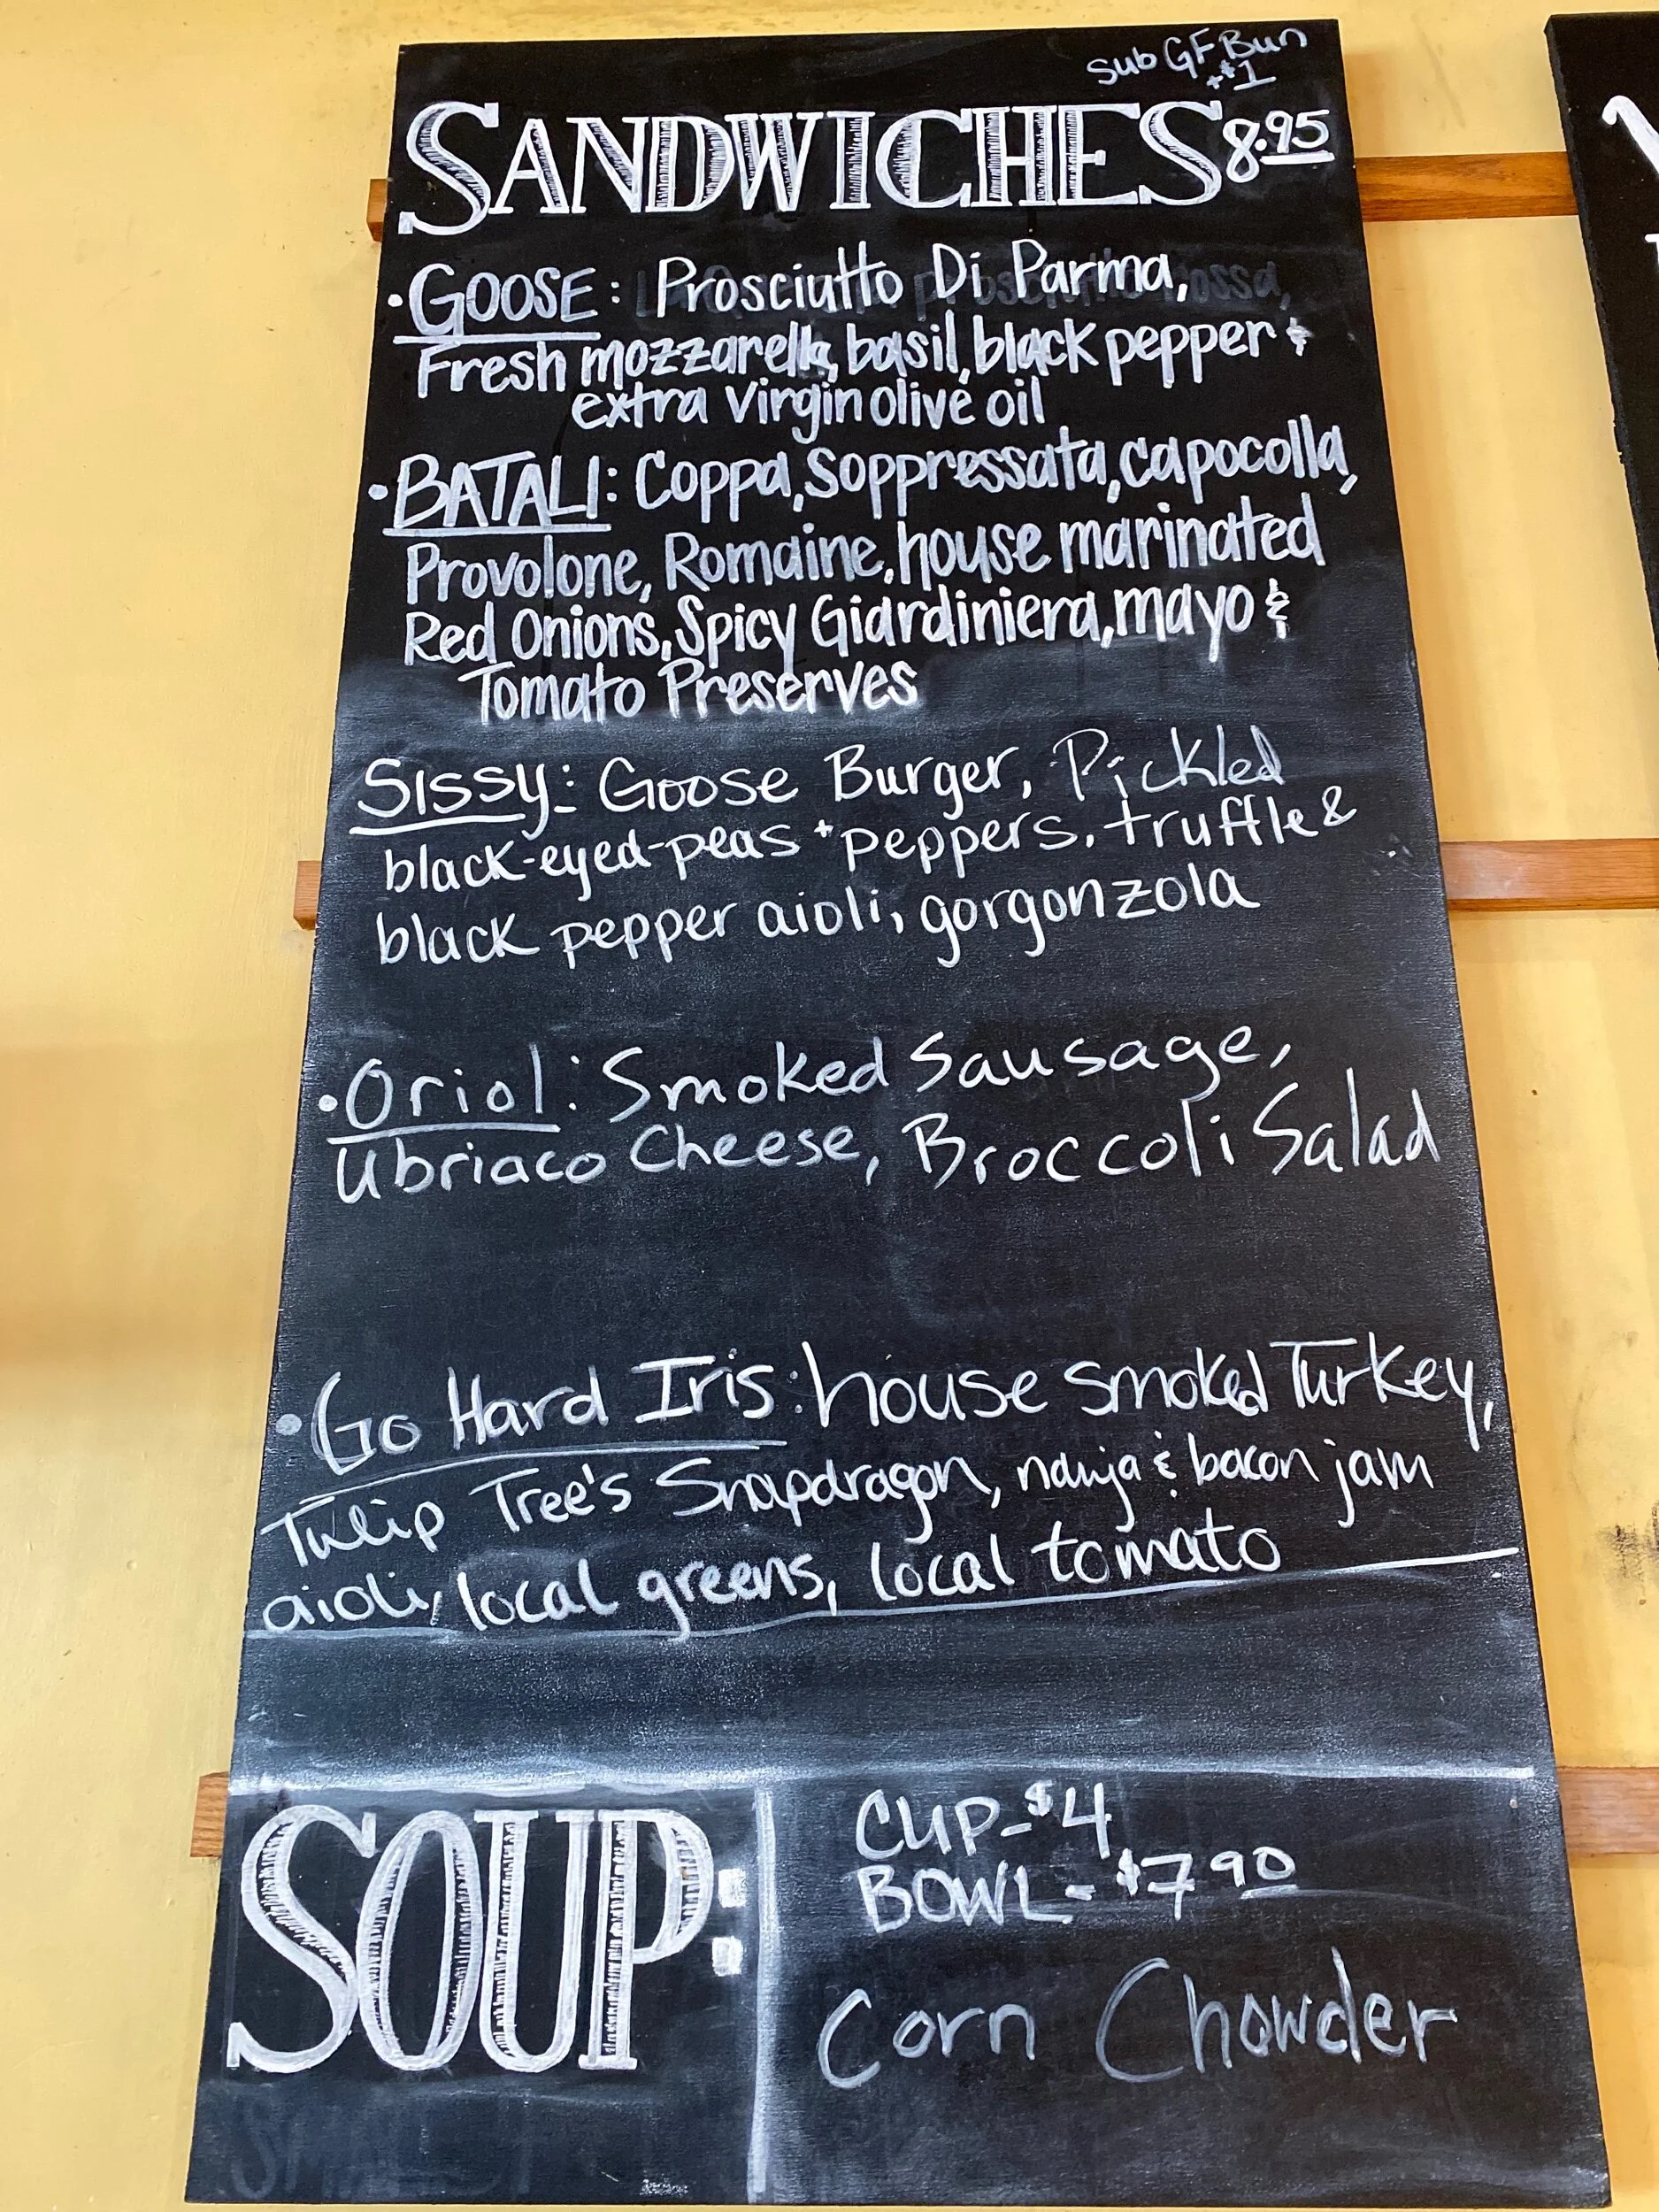 Sub GF Bun
+$1
SANDWICHES 8.95
• GOOSE: Prosciutto Di Parma,
Fresh mozzarella, basil, black pepper &
extra virgin olive oil
• BATALI: Coppa, Soppressata, capocolla,
Provolone, Romaine, house marinated
Red Onions, Spicy Giardiniera, mayo &
Tomato Preserves
SISSY: Goose Burger, Pickled
black-eyed-peas + peppers, truffle &
black pepper aioli, gorgonzola
• Oriol: Smoked Sausage,
Ubriaco Cheese, Broccoli Salad
• Go Hard Iris: house smoked Turkey,
Tulip Tree's Snapdragon, nduja & bacon jam
aioli, local greens, local tomato
SOUP:
CUP - $4
BOWL - $7 90
Corn Chowder